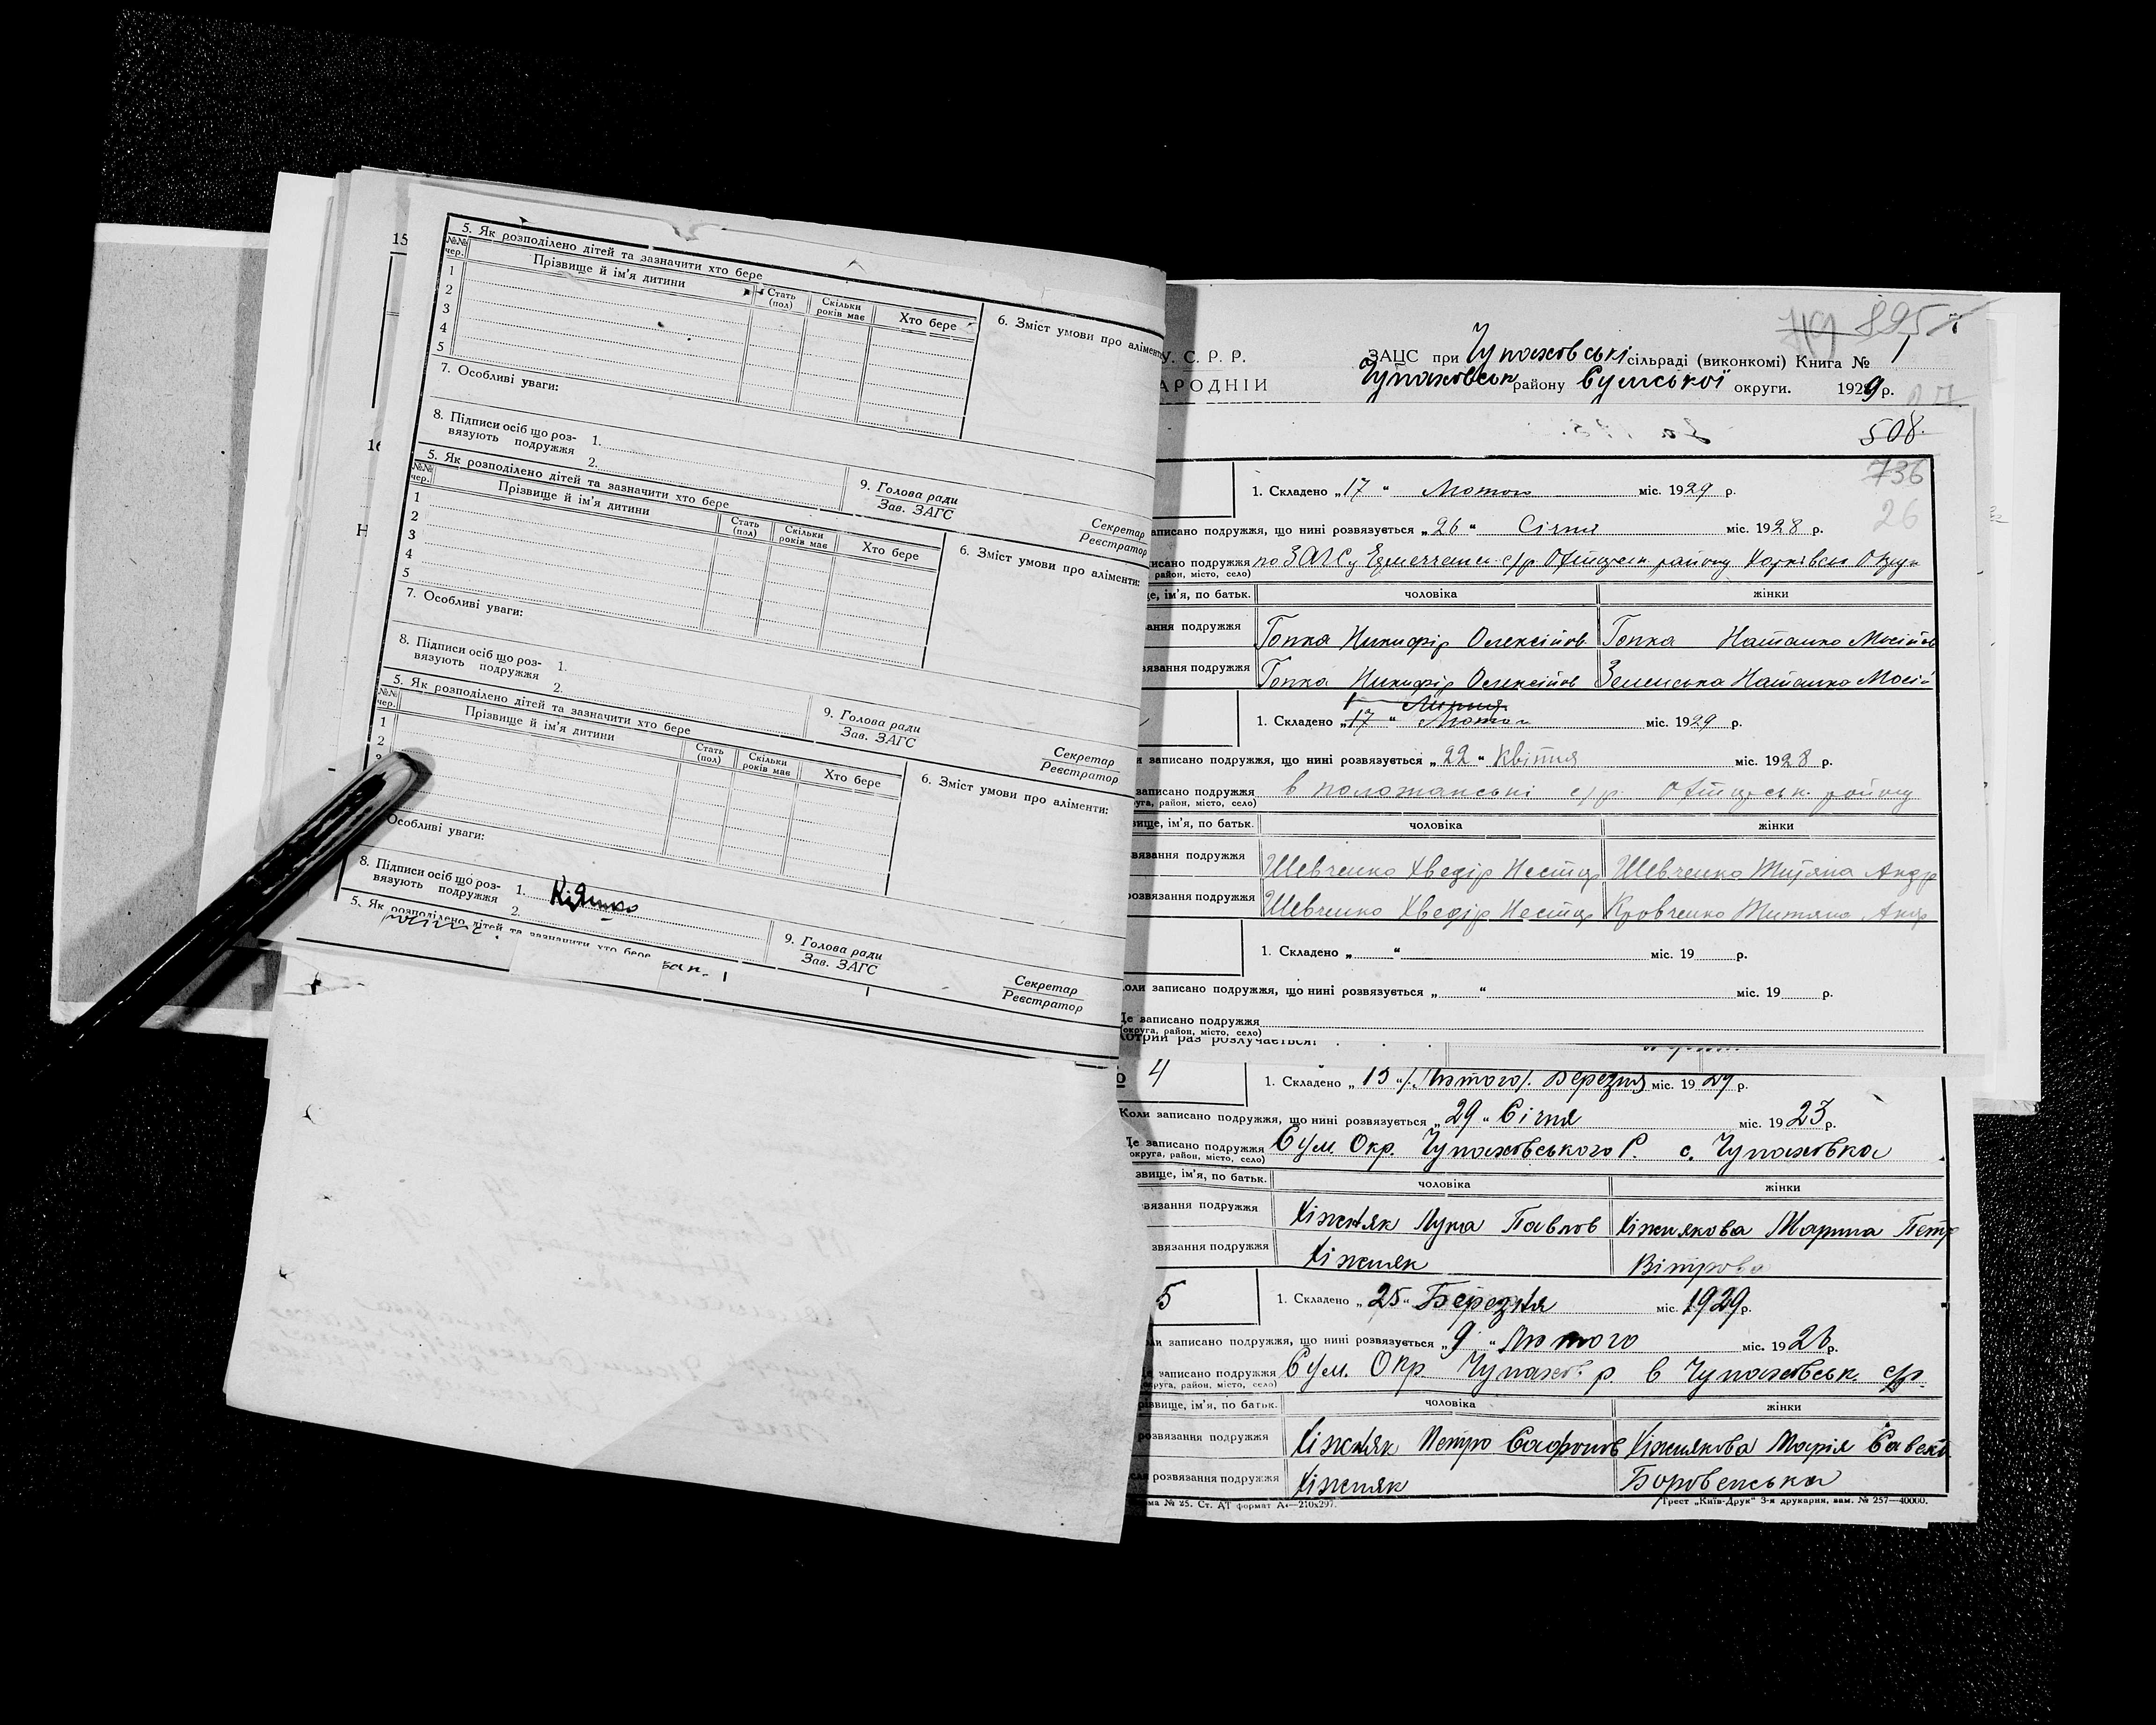 15
16
Н
5. Як розподілено дітей та зазначити хто бере
№№ чер.
Прізвище й ім'я дитини
Стать (пол)
Скільки років має
Хто бере
6. Зміст умови про аліменти
1
2
3
4
5
7. Особливі уваги:
8. Підписи осіб що роз-
вязують подружжя
1.
2.
9. Голова ради
Зав. ЗАГС
Секретар
Реєстратор
5. Як розподілено дітей та зазначити хто бере
№№ чер.
Прізвище й ім'я дитини
Стать (пол)
Скільки років має
Хто бере
6. Зміст умови про аліменти:
1
2
3
4
5
7. Особливі уваги:
8. Підписи осіб що роз-
вязують подружжя
1.
2.
9. Голова ради
Зав. ЗАГС
Секретар
Реєстратор
5. Як розподілено дітей та зазначити хто бере
№№ чер.
Прізвище й ім'я дитини
Стать (пол)
Скільки років має
Хто бере
6. Зміст умови про аліменти:
1
2
Особливі уваги:
8. Підписи осіб що роз-
вязують подружжя
1.
2.
9. Голова ради
Зав. ЗАГС
Секретар
Реєстратор
5. Як розподілено дітей та зазначити хто бере
895
У. С. Р. Р.
АРОДНІЙ
ЗАЦС при Чупаховські сільраді (виконкомі) Книга № 1
Чупаховськ району Сумської округи. 1929 р.
508
736
26
1. Складено „17“ Лютого міс. 1929 р.
аписано подружжя, що нині розвязується „26“ Січня міс. 1928 р.
исано подружжя по ЗАГСу с/р Охтирськ району Харківськ Округи
район, місто, село)
е, ім'я, по батьк. чоловіка жінки
ання подружжя Гопка Никифір Олексійов Гопка Наталка Мосійов
язання подружжя Гопка Никифір Олексійов Наталка Мосій
1. Складено „17“ Лютого міс. 1929 р.
и записано подружжя, що нині розвязується „22“ Квітня міс. 1928 р.
записано подружжя в с/р. Охтирськ. району
уга, район, місто, село)
вище, ім'я, по батьк. чоловіка жінки
вязання подружжя Шевченко Хведір Нестер Шевченко Титяна Андр
розвязання подружжя Шевченко Хведір Нестер Кровченко Титяна Андр
1. Складено „ “ міс. 19 р.
оли записано подружжя, що нині розвязується „ “ міс. 19 р.
Де записано подружжя
(округа, район, місто, село)
Котрий раз розлучається:
4
1. Складено „13“ /Лютого/ Березня міс. 1929 р.
Коли записано подружжя, що нині розвязується „29“ Січня міс. 1923 р.
Де записано подружжя Сум. Окр. Чупаховського Р. с. Чупаховка
округа, район, місто, село)
звище, ім'я, по батьк. чоловіка жінки
вязання подружжя Хіжняк Лука Павлов Хіжнякова Марина Петр
звязання подружжя Хіжняк Вітрова
5
1. Складено „25“ Березня міс. 1929 р.
ли записано подружжя, що нині розвязується „9“ Лютого міс. 1926 р.
е записано подружжя Сум. Окр Чупахов. р. в Чупаховськ. с/р.
округа, район, місто, село)
різвище, ім'я, по батьк. чоловіка жінки
розвязання подружжя Хіжняк Петро Сафонов Хіжнякова Марія Савект
розвязання подружжя Хіжняк Боровенська
ма № 25. Ст. АТ формат А₄—210х297.
Трест „Київ-Друк“ 3-я друкарня, зам. № 257—40000.